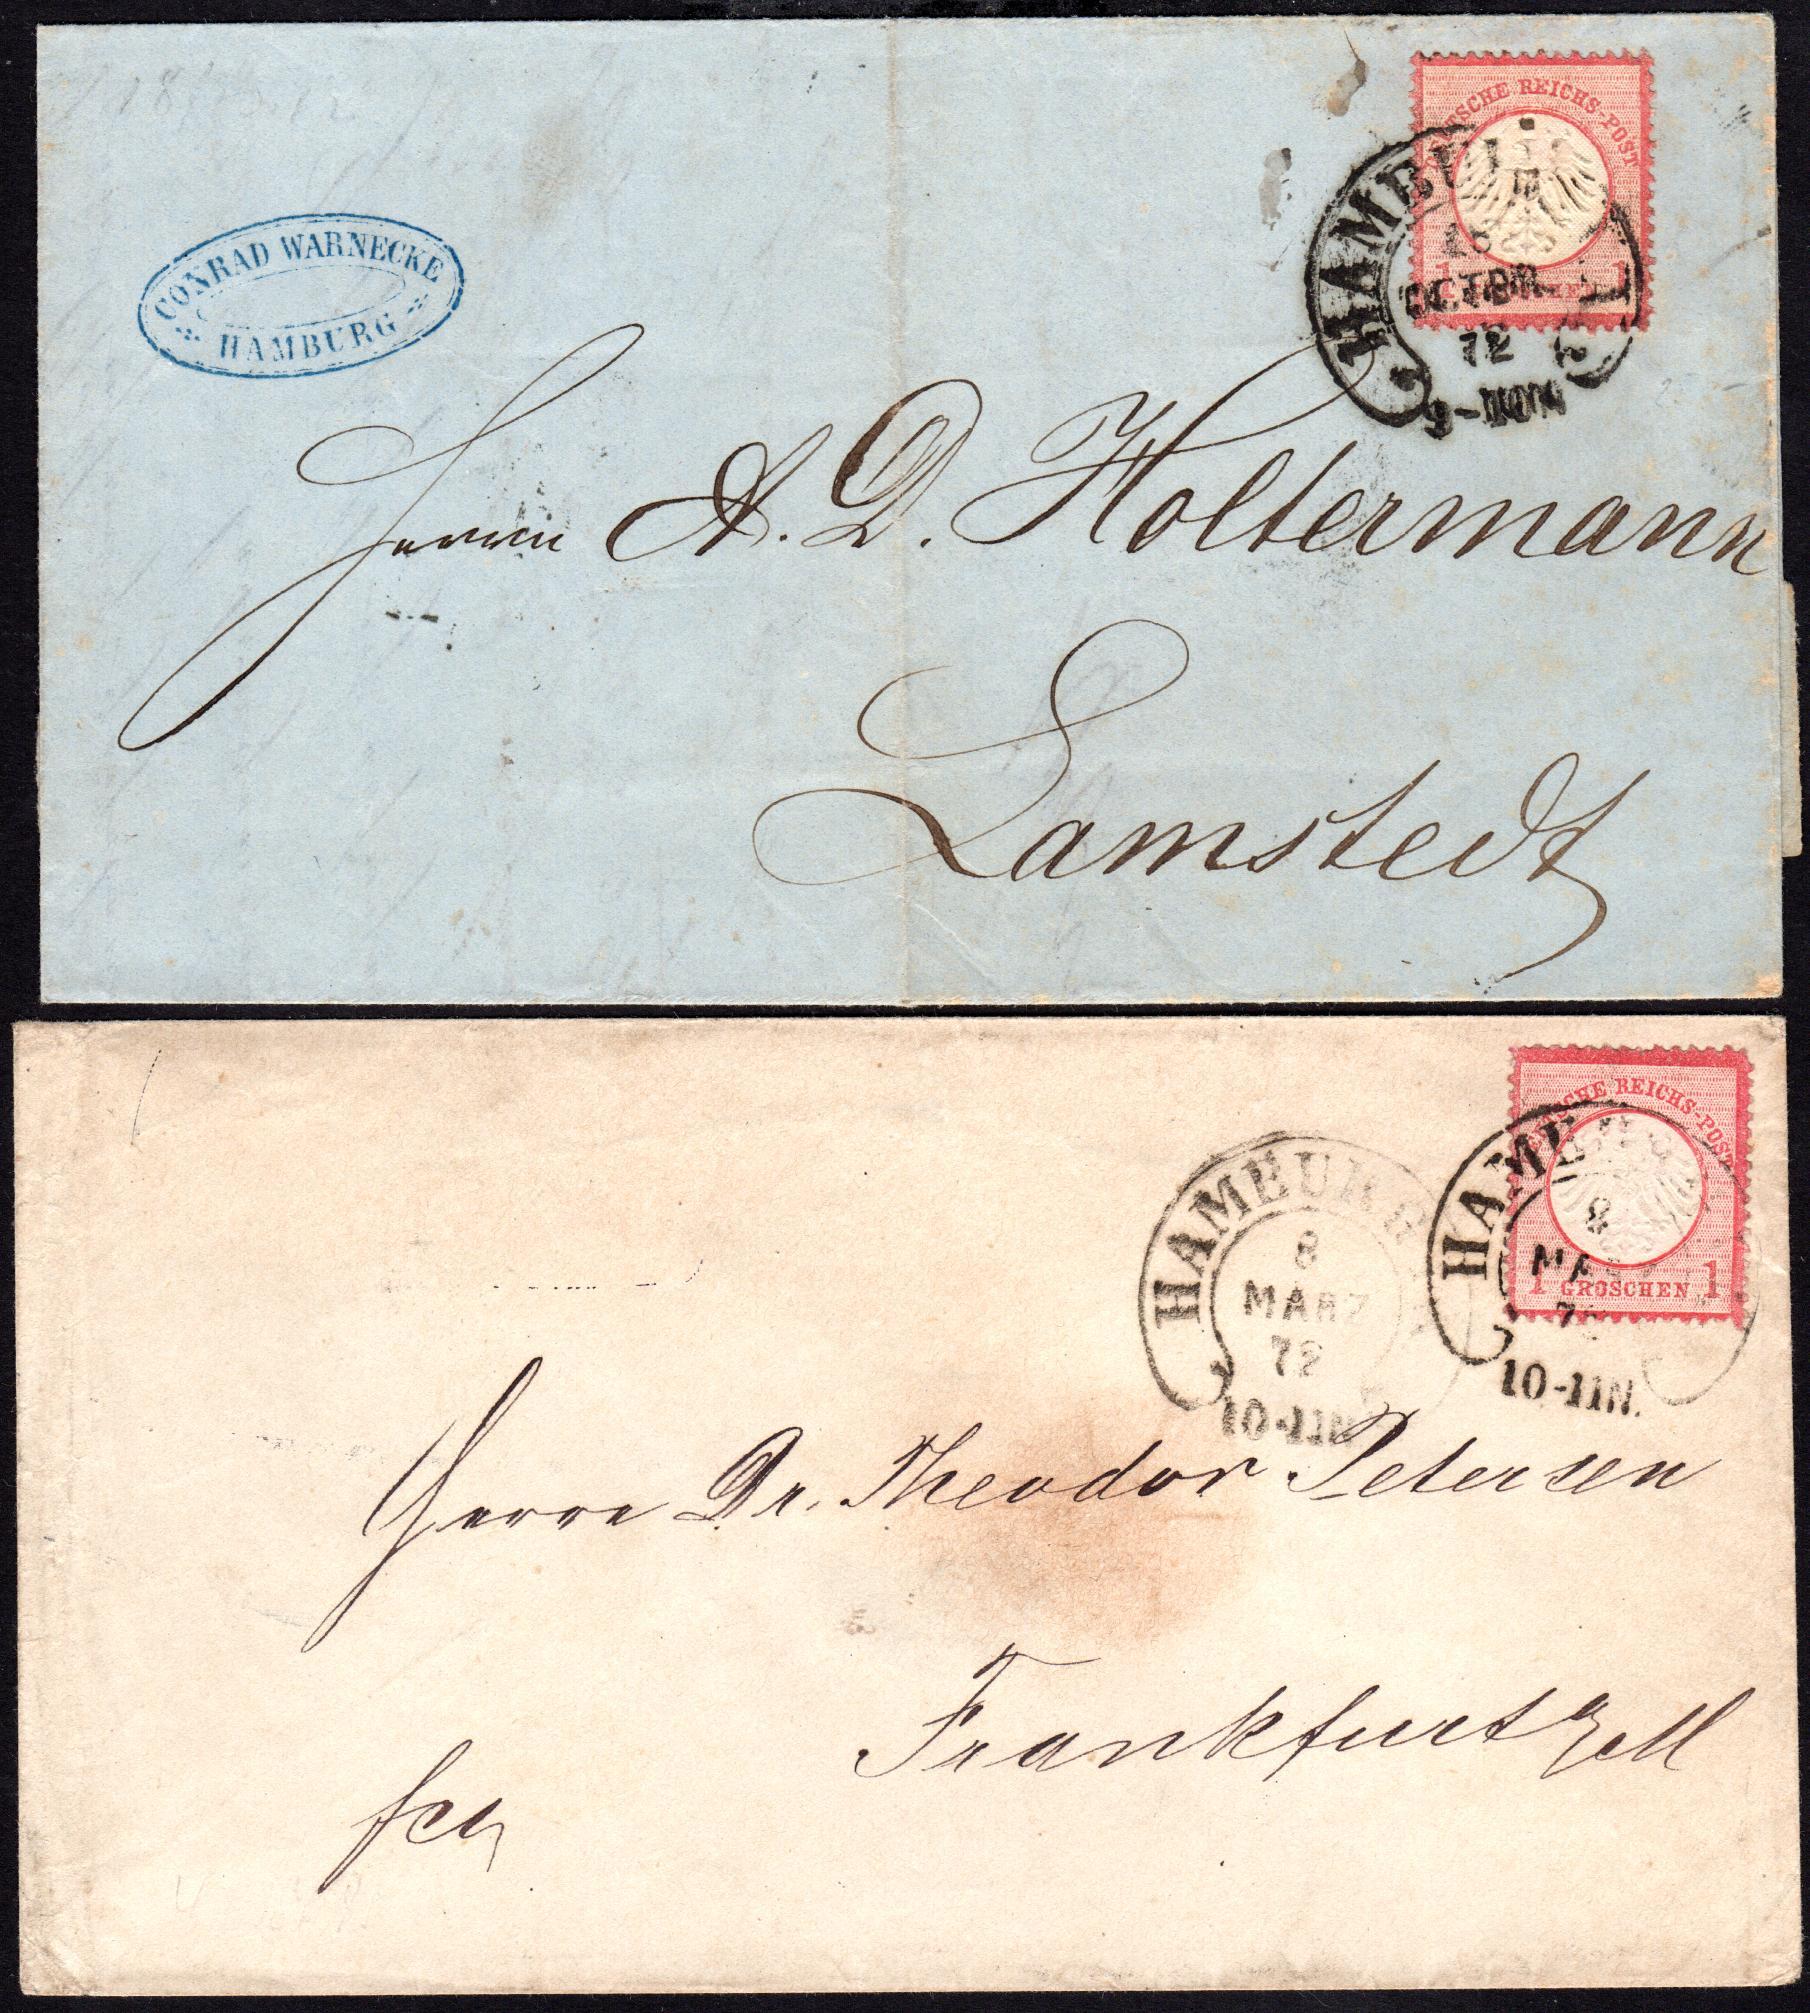 DEUTSCHE REICHS-POST
HAMBU
OCTBR
72
1 1
CONRAD WARNECKE
HAMBURG
Herrn A. D. Holtermann
Lamstedt
DEUTSCHE REICHS-POST
1 GROSCHEN 1
HAMBURG
8
MARZ
72
10-11N.
HAMBURG
8
MARZ
72
10-11N.
Herrn Dr. Theodor Petersen
Frankfurt